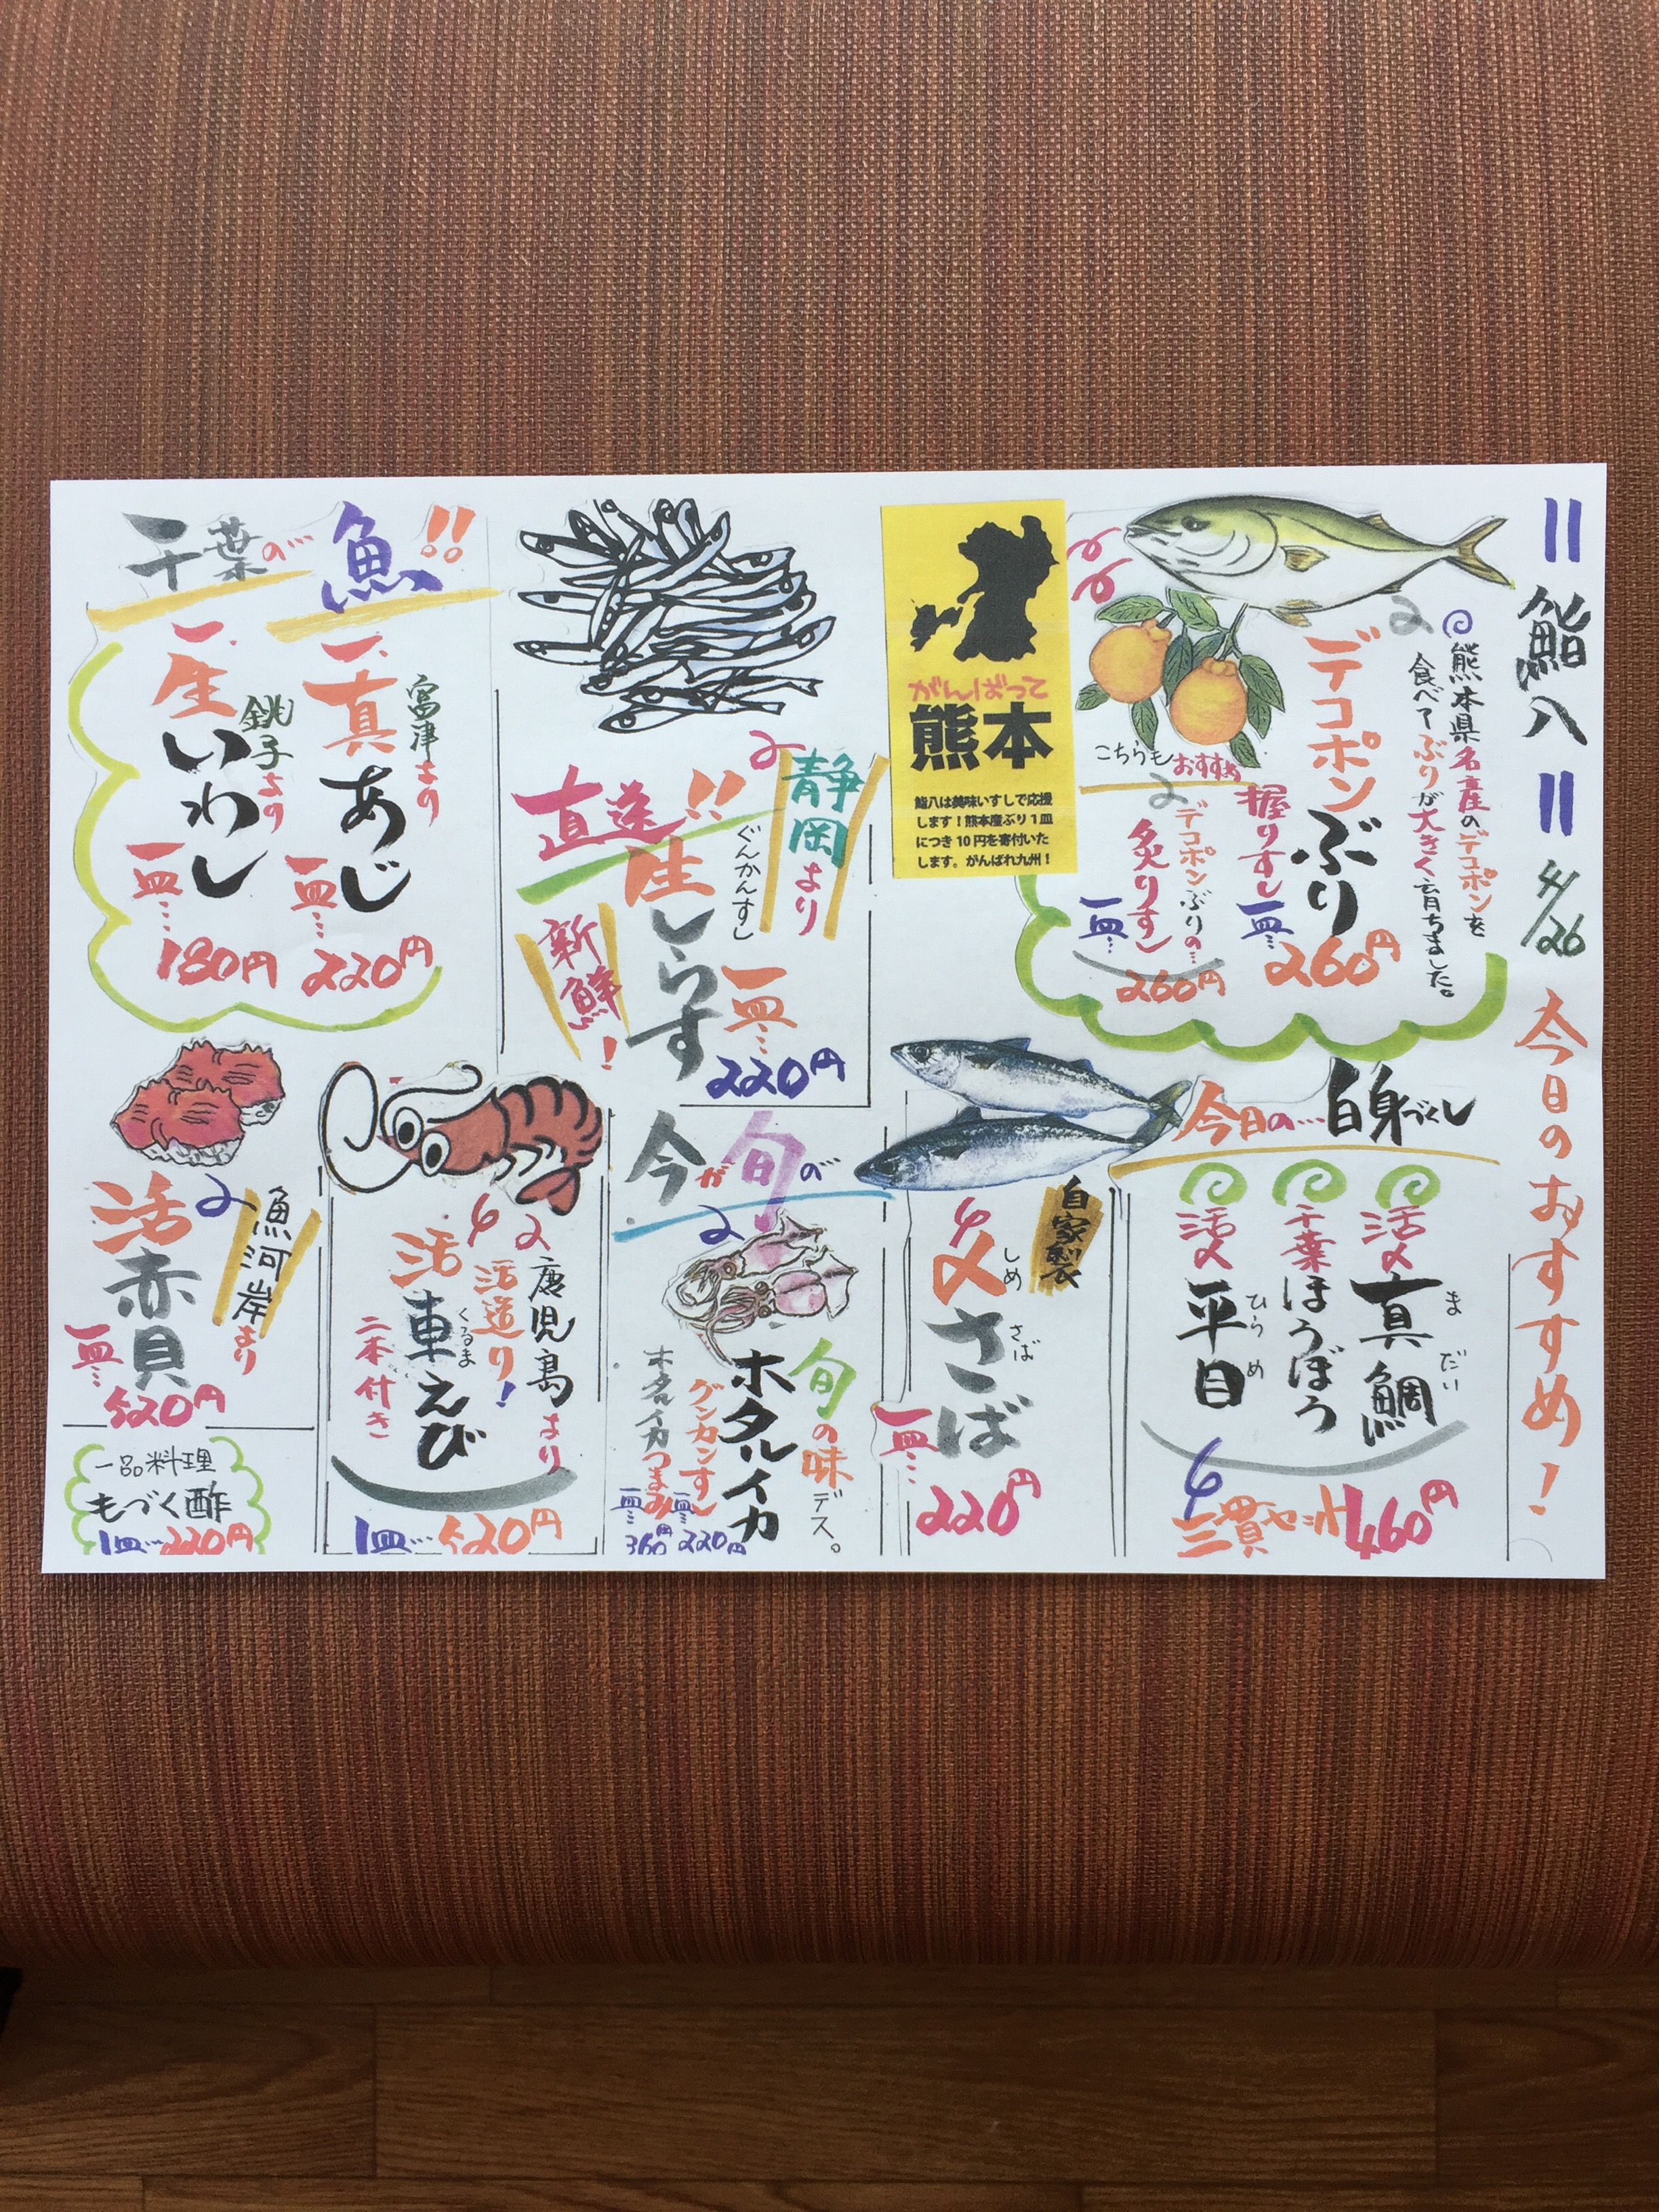 鮨八
4/26
今日のおすすめ!
熊本県名産のデコポンを
食べてぶりが大きく育ちました。
デコポンぶり
握りすし一皿…
260円
こちらもおすすめ
デコポンぶりの…
炙りすし
一皿…
260円
がんばって
熊本
鮨八は美味いすしで応援
します!熊本産ぶり1皿
につき10円を寄付いた
します。がんばれ九州!
静岡より
直送!!
ぐんかんすし
生しらす
新鮮!
一皿…
220円
千葉の…魚!!
富津もの
真あじ
一皿…
220円
銚子もの
生いわし
一皿…
180円
今日の…白身づくし
活〆真鯛
まだい
千葉ほうぼう
活〆平目
ひらめ
三貫セット460円
自家製
〆さば
しめさば
一皿…
220円
今が旬の
旬の味デス。
ホタルイカ
グンカンすし
一皿…220円
ホタルイカつまみ
一皿…360円
鹿児島より
活造り!
活車えび
くるま
二本付き
1皿…520円
魚河岸より
活赤貝
一皿…
520円
一品料理
もづく酢
1皿…220円